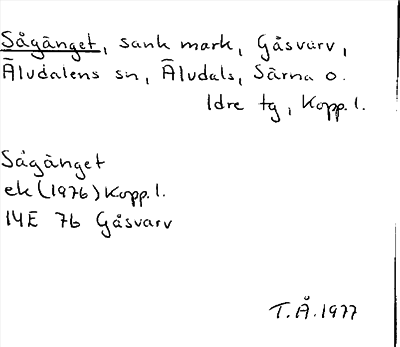 Sågänget, sank mark, Gåsvarv,
Äludalens sn, Äludals, Särna o.
Idre tg, Kopp. l.
Sågänget
ek (1976) Kopp. l.
14E 7b Gåsvarv
T.Å. 1977